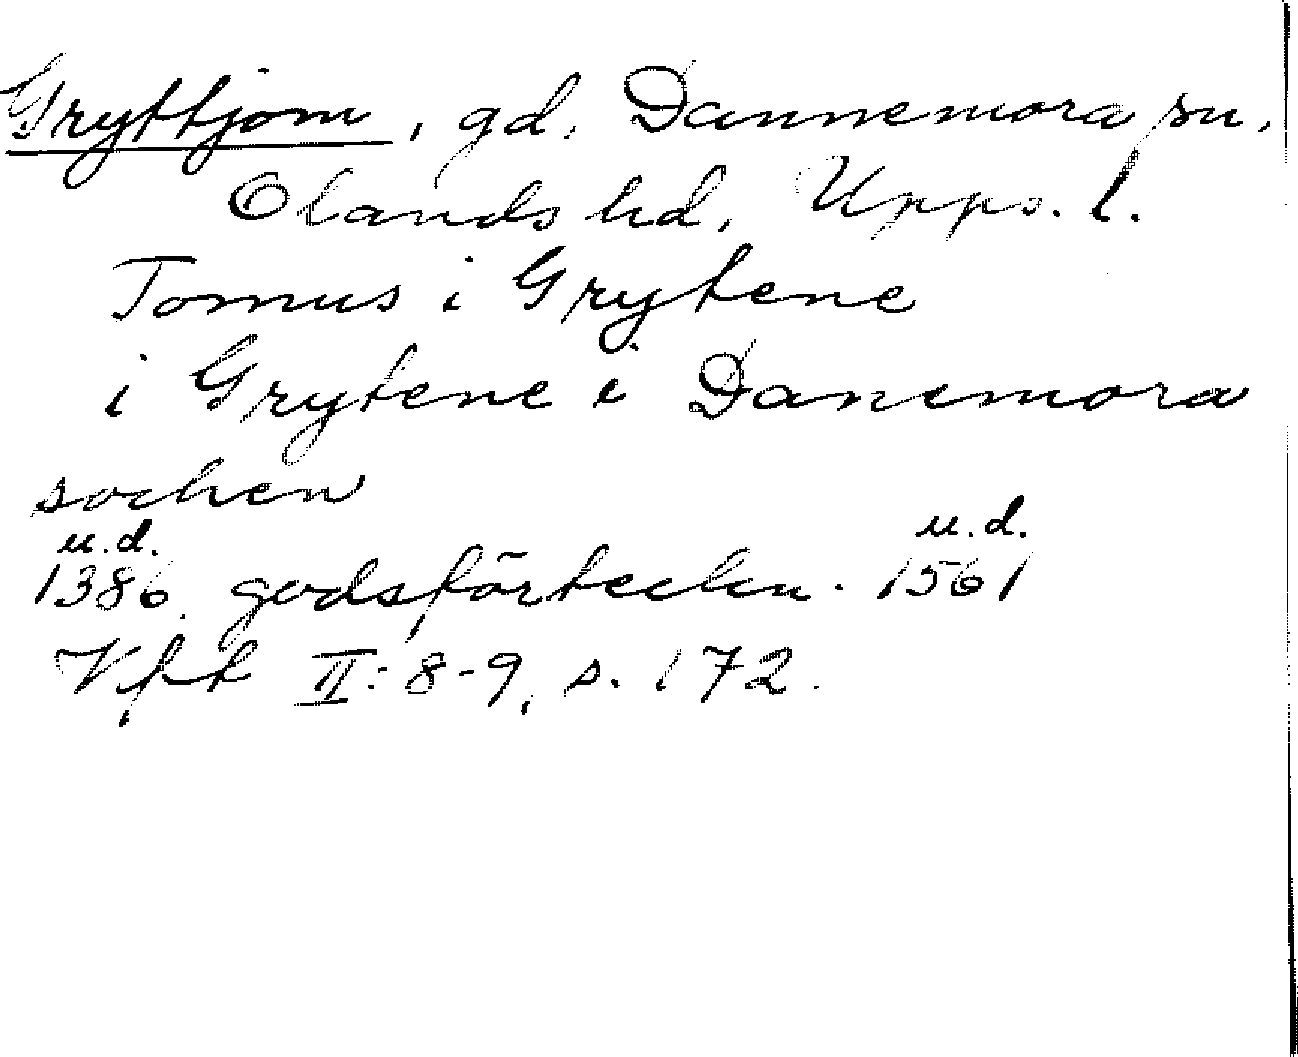 Gryttjom, gd. Dannemora sn,
Olands hd, Upps. l.
Tomus i Grytene
i Grytene i Danemora
sochen
u.d. u.d.
1386 godsförteckn. 1561
Vfrt II: 8-9, s. 172.